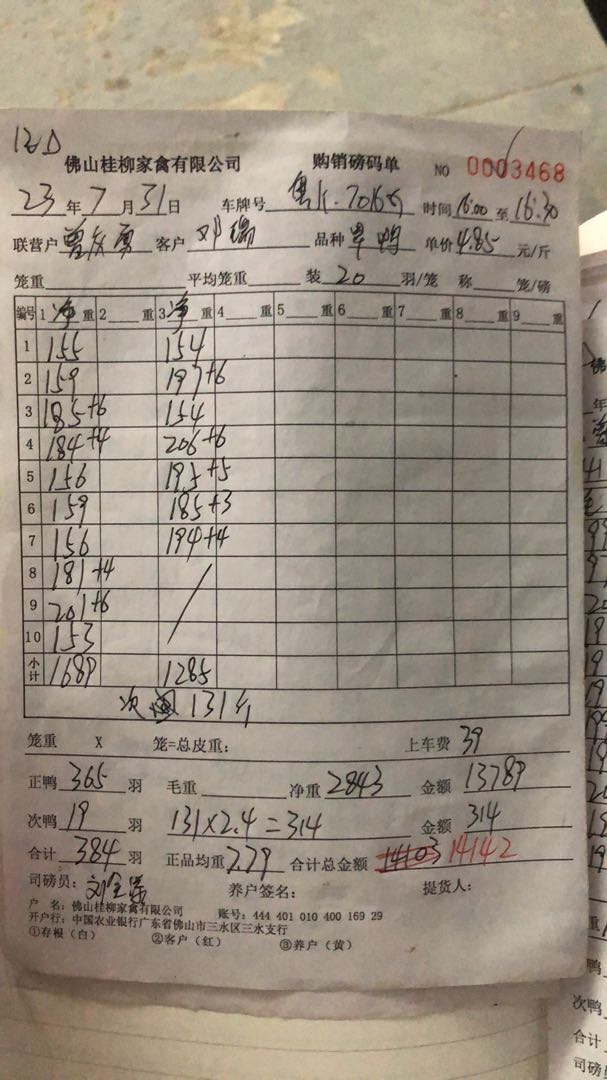 12D
佛山桂柳家禽有限公司 购销磅码单 NO 0003468
23年7月31日 车牌号 时间16:00至16:30
联营户 客户 邓瑞 品种 单价4.85元/斤
笼重 平均笼重 装20羽/笼 称 笼/磅
编号 1净重 2重 3净重 4重 5重 6重 7重 8重 9重
1 155 154
2 159 197+6
3 185+6 154
4 184+4 206+6
5 156 195+5
6 159 185+3
7 156 194+4
8 181+4
9 201+6
10 153
小计 1689 1285
次 131斤
笼重 X 笼=总皮重: 上车费 39
正鸭365羽 毛重 净重2843 金额13789
次鸭19羽 131×2.4=314 金额314
合计384羽 正品均重7.79 合计总金额 14103 14142
司磅员: 养户签名: 提货人:
户 名:佛山桂柳家禽有限公司 账号:444 401 010 400 169 29
开户行:中国农业银行广东省佛山市三水区三水支行
①存根(白) ②客户(红) ③养户(黄)